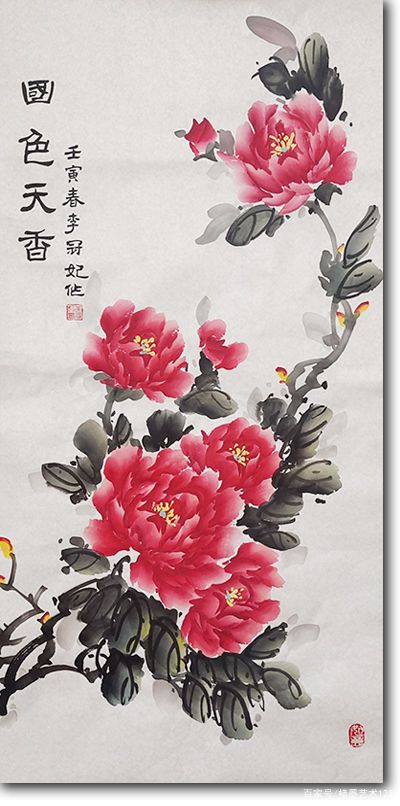 國色天香
壬寅春李冠妃作
百家号/